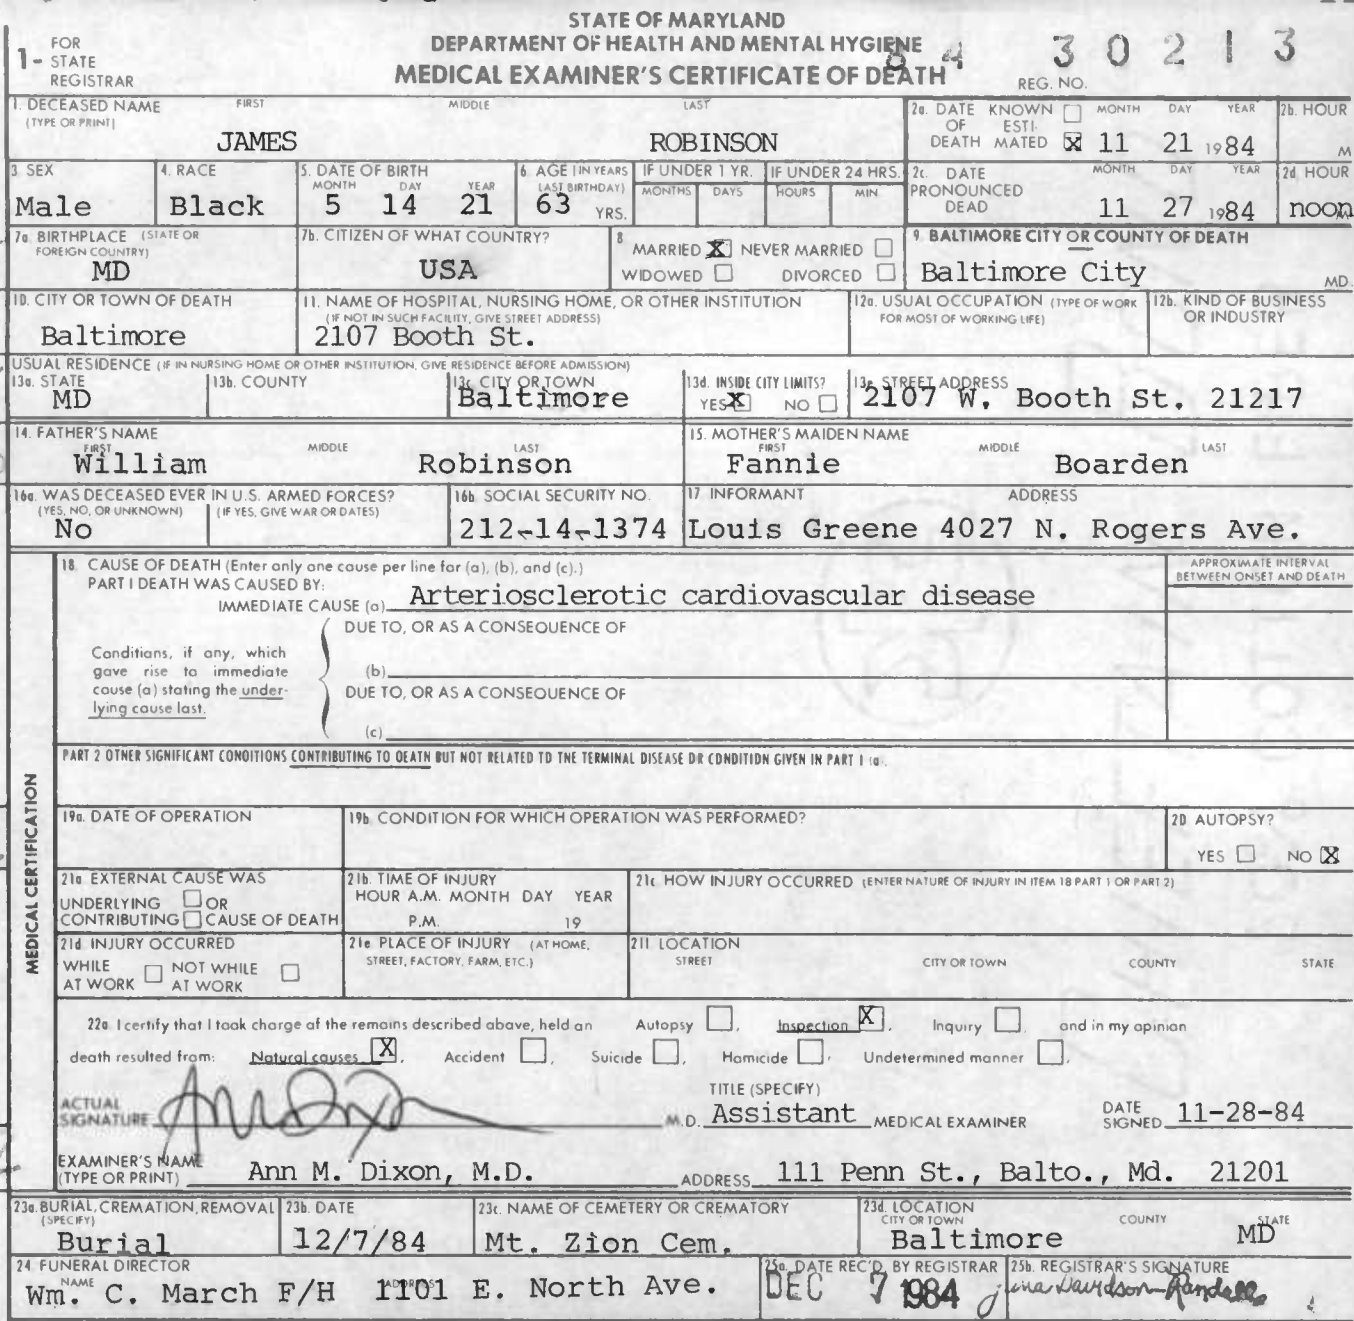 STATE OF MARYLAND
DEPARTMENT OF HEALTH AND MENTAL HYGIENE
MEDICAL EXAMINER'S CERTIFICATE OF DEATH
1- FOR STATE REGISTRAR
84 30213
REG. NO.
1. DECEASED NAME (TYPE OR PRINT) FIRST MIDDLE LAST
JAMES ROBINSON
2a. DATE OF DEATH KNOWN ☐ ESTIMATED ☒ MONTH DAY YEAR 11 21 1984
2b. HOUR M
3 SEX Male
4. RACE Black
5. DATE OF BIRTH MONTH DAY YEAR 5 14 21
6. AGE (IN YEARS LAST BIRTHDAY) 63 YRS.
IF UNDER 1 YR. MONTHS DAYS
IF UNDER 24 HRS. HOURS MIN
2c. DATE PRONOUNCED DEAD MONTH DAY YEAR 11 27 1984
2d. HOUR noon M
7a. BIRTHPLACE (STATE OR FOREIGN COUNTRY) MD
7b. CITIZEN OF WHAT COUNTRY? USA
8 MARRIED ☒ NEVER MARRIED ☐
WIDOWED ☐ DIVORCED ☐
9. BALTIMORE CITY OR COUNTY OF DEATH
Baltimore City MD.
10. CITY OR TOWN OF DEATH
Baltimore
11. NAME OF HOSPITAL, NURSING HOME, OR OTHER INSTITUTION
(IF NOT IN SUCH FACILITY, GIVE STREET ADDRESS)
2107 Booth St.
12a. USUAL OCCUPATION (TYPE OF WORK FOR MOST OF WORKING LIFE)
12b. KIND OF BUSINESS OR INDUSTRY
USUAL RESIDENCE (IF IN NURSING HOME OR OTHER INSTITUTION, GIVE RESIDENCE BEFORE ADMISSION)
13a. STATE MD
13b. COUNTY
13c. CITY OR TOWN Baltimore
13d. INSIDE CITY LIMITS? YES ☒ NO ☐
13e. STREET ADDRESS 2107 W. Booth St. 21217
14. FATHER'S NAME FIRST MIDDLE LAST
William Robinson
15. MOTHER'S MAIDEN NAME FIRST MIDDLE LAST
Fannie Boarden
16a. WAS DECEASED EVER IN U.S. ARMED FORCES?
(YES, NO, OR UNKNOWN) (IF YES, GIVE WAR OR DATES)
No
16b. SOCIAL SECURITY NO.
212-14-1374
17 INFORMANT ADDRESS
Louis Greene 4027 N. Rogers Ave.
MEDICAL CERTIFICATION
18. CAUSE OF DEATH (Enter only one cause per line for (a), (b), and (c).)
PART I DEATH WAS CAUSED BY:
IMMEDIATE CAUSE (a) Arteriosclerotic cardiovascular disease
APPROXIMATE INTERVAL BETWEEN ONSET AND DEATH
Conditions, if any, which gave rise to immediate cause (a) stating the underlying cause last.
DUE TO, OR AS A CONSEQUENCE OF
(b)
DUE TO, OR AS A CONSEQUENCE OF
(c)
PART 2 OTHER SIGNIFICANT CONDITIONS CONTRIBUTING TO DEATH BUT NOT RELATED TO THE TERMINAL DISEASE OR CONDITION GIVEN IN PART I (a).
19a. DATE OF OPERATION
19b. CONDITION FOR WHICH OPERATION WAS PERFORMED?
20 AUTOPSY?
YES ☐ NO ☒
21a EXTERNAL CAUSE WAS
UNDERLYING ☐ OR
CONTRIBUTING ☐ CAUSE OF DEATH
21b. TIME OF INJURY
HOUR A.M. MONTH DAY YEAR
P.M. 19
21c HOW INJURY OCCURRED (ENTER NATURE OF INJURY IN ITEM 18 PART 1 OR PART 2)
21d INJURY OCCURRED
WHILE AT WORK ☐ NOT WHILE AT WORK ☐
21e PLACE OF INJURY (AT HOME, STREET, FACTORY, FARM, ETC.)
21f LOCATION
STREET CITY OR TOWN COUNTY STATE
22a. I certify that I took charge of the remains described above, held an Autopsy ☐, Inspection ☒, Inquiry ☐, and in my opinion
death resulted from: Natural causes ☒, Accident ☐, Suicide ☐, Homicide ☐, Undetermined manner ☐.
ACTUAL SIGNATURE Ann Dixon M.D.
TITLE (SPECIFY) Assistant MEDICAL EXAMINER
DATE SIGNED 11-28-84
EXAMINER'S NAME (TYPE OR PRINT) Ann M. Dixon, M.D.
ADDRESS 111 Penn St., Balto., Md. 21201
23a. BURIAL, CREMATION, REMOVAL (SPECIFY) Burial
23b. DATE 12/7/84
23c. NAME OF CEMETERY OR CREMATORY Mt. Zion Cem.
23d. LOCATION CITY OR TOWN COUNTY STATE
Baltimore MD
24 FUNERAL DIRECTOR
NAME ADDRESS
Wm. C. March F/H 1101 E. North Ave.
25a. DATE REC'D. BY REGISTRAR
DEC 7 1984
25b. REGISTRAR'S SIGNATURE
Davidson-Randall